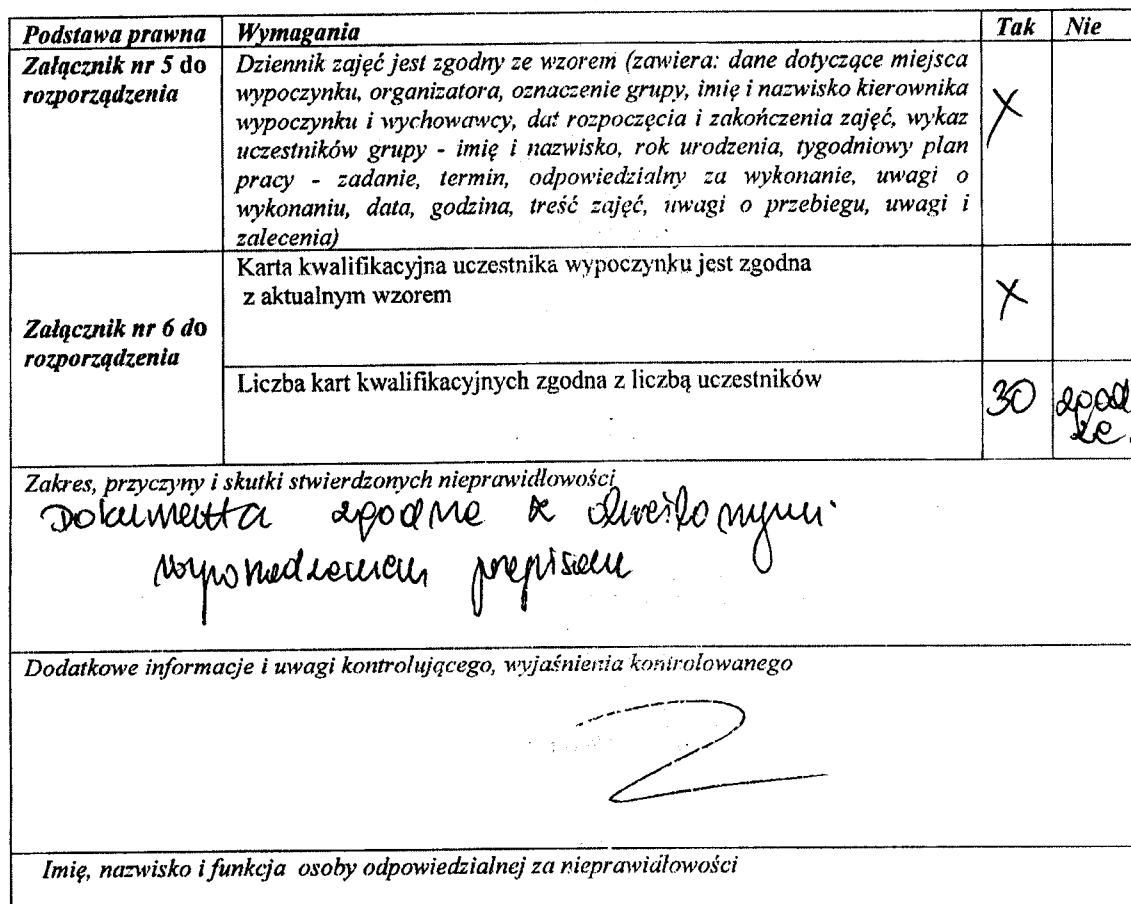 Podstawa prawna Wymagania Tak Nie
Załącznik nr 5 do rozporządzenia
Dziennik zajęć jest zgodny ze wzorem (zawiera: dane dotyczące miejsca
wypoczynku, organizatora, oznaczenie grupy, imię i nazwisko kierownika
wypoczynku i wychowawcy, dat rozpoczęcia i zakończenia zajęć, wykaz
uczestników grupy - imię i nazwisko, rok urodzenia, tygodniowy plan
pracy - zadanie, termin, odpowiedzialny za wykonanie, uwagi o
wykonaniu, data, godzina, treść zajęć, uwagi o przebiegu, uwagi i
zalecenia)
X
Załącznik nr 6 do
rozporządzenia
Karta kwalifikacyjna uczestnika wypoczynku jest zgodna
z aktualnym wzorem
X
Liczba kart kwalifikacyjnych zgodna z liczbą uczestników
30
Zakres, przyczyny i skutki stwierdzonych nieprawidłowości
zgodne z
Dodatkowe informacje i uwagi kontrolującego, wyjaśnienia kontrolowanego
Imię, nazwisko i funkcja osoby odpowiedzialnej za nieprawidłowości